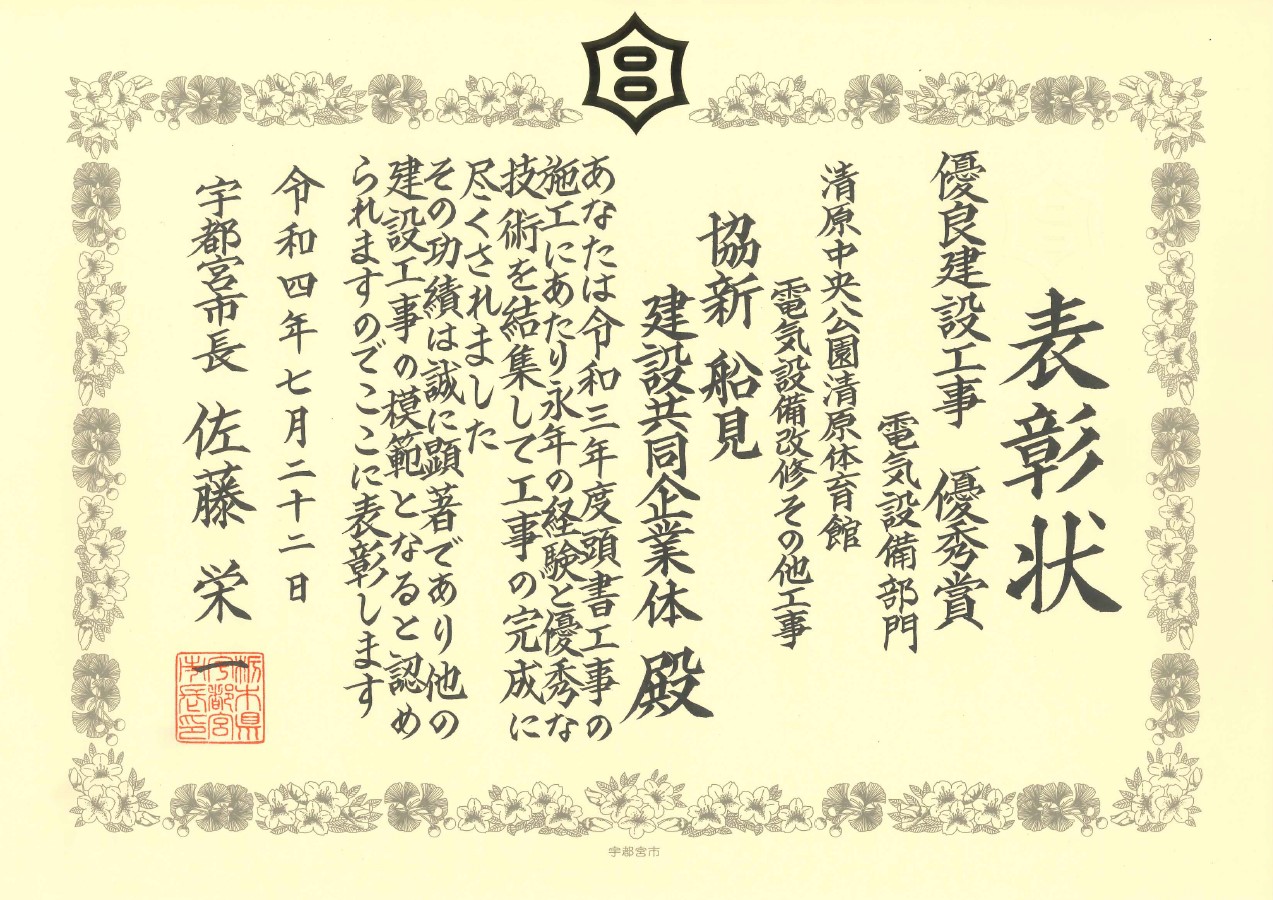 表彰状
優良建設工事 優秀賞
電気設備部門
清原中央公園清原体育館
電気設備改修その他工事
協新 船見
建設共同企業体 殿
あなたは令和三年度頭書工事の
施工にあたり永年の経験と優秀な
技術を結集して工事の完成に
尽くされました
その功績は誠に顕著であり他の
建設工事の模範となると認め
られますのでここに表彰します
令和四年七月二十二日
宇都宮市長 佐藤 栄一
栃木県
宇都宮
市長印
宇都宮市